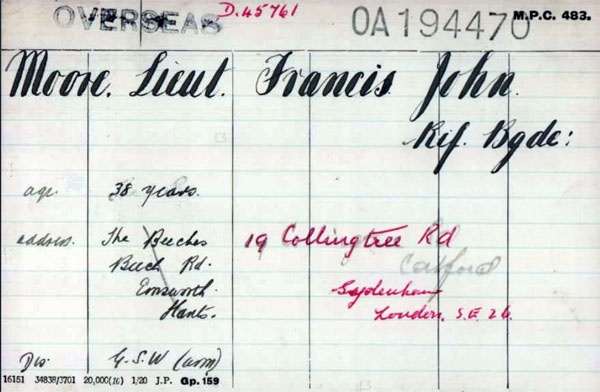 OVERSEAS D.45761 OA194470 M.P.C. 483.
Moore. Lieut. Francis John.
Rif. Bgde:
age. 38 years.
address. The Beeches 19 Collingtree Rd
Beech Rd. Catford
Emsworth. Sydenham
Hants. London. S.E. 26.
Dis. G.S.W (arm)
16151 34838/3701 20,000(16) 1/20 J.P. Gp.159